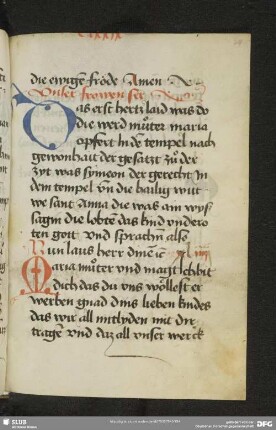 die ewigen fröde Amen
Das erst hertz laid was do
die werd můter maria
opfert In dē tempel nach
gewonhait der gesatzt zů der
zyt was symeon der gerecht in
dem tempel vn die hailig witt
we sant Anna die was am wyss
sagin die lobtē das kind
ten gott vnd sprachn also
Nun laus herr
Maria můter vnd magt Ich bit
dich das du vns wöllest er
werben gnad dins lieben kindes
das wir all mitlyden mit dir
tragen vnd daz all vnser werck
SLUB
DFG